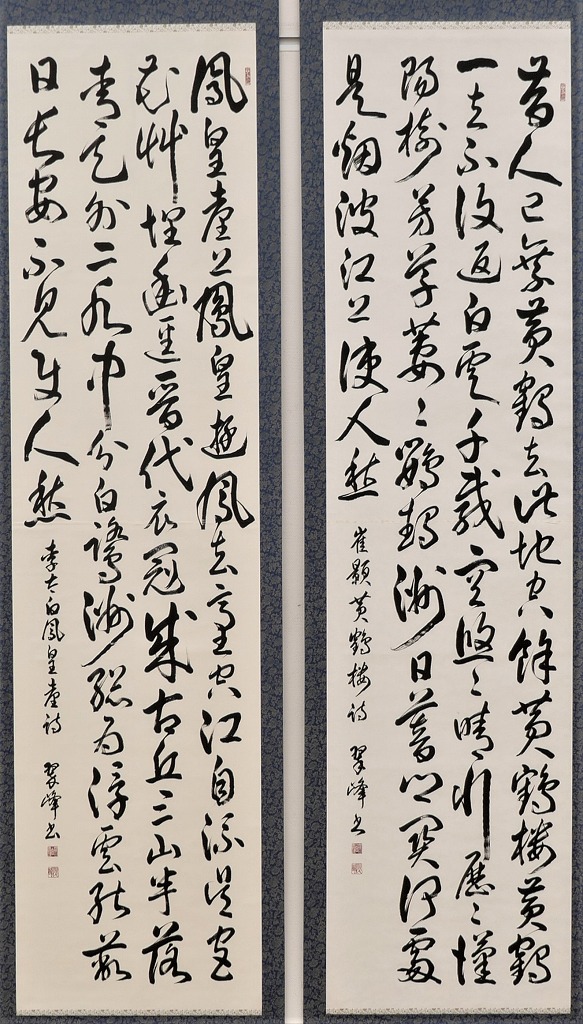 昔人已乗黄鶴去此地空餘黄鶴楼黄鶴
一去不復返白雲千載空悠々晴川歴々漢
陽樹芳草萋々鸚鵡洲日暮郷関何處
是烟波江上使人愁 崔顥黄鶴楼詩 翠峰書
鳳皇臺上鳳皇遊鳳去臺空江自流呉宮
花艸埋幽逕晋代衣冠成古丘三山半落
青天外二水中分白鷺洲総為浮雲能蔽
日長安不見使人愁 李太白鳳皇臺詩 翠峰書